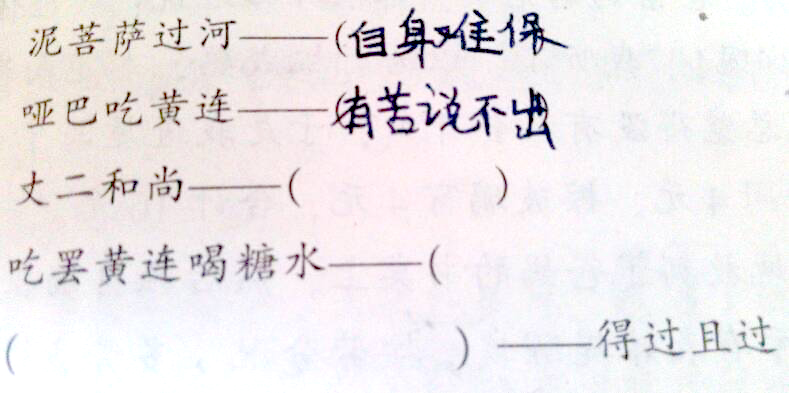 泥菩萨过河——(自身难保
哑巴吃黄连——(有苦说不出
丈二和尚——( )
吃罢黄连喝糖水——(
( )——得过且过